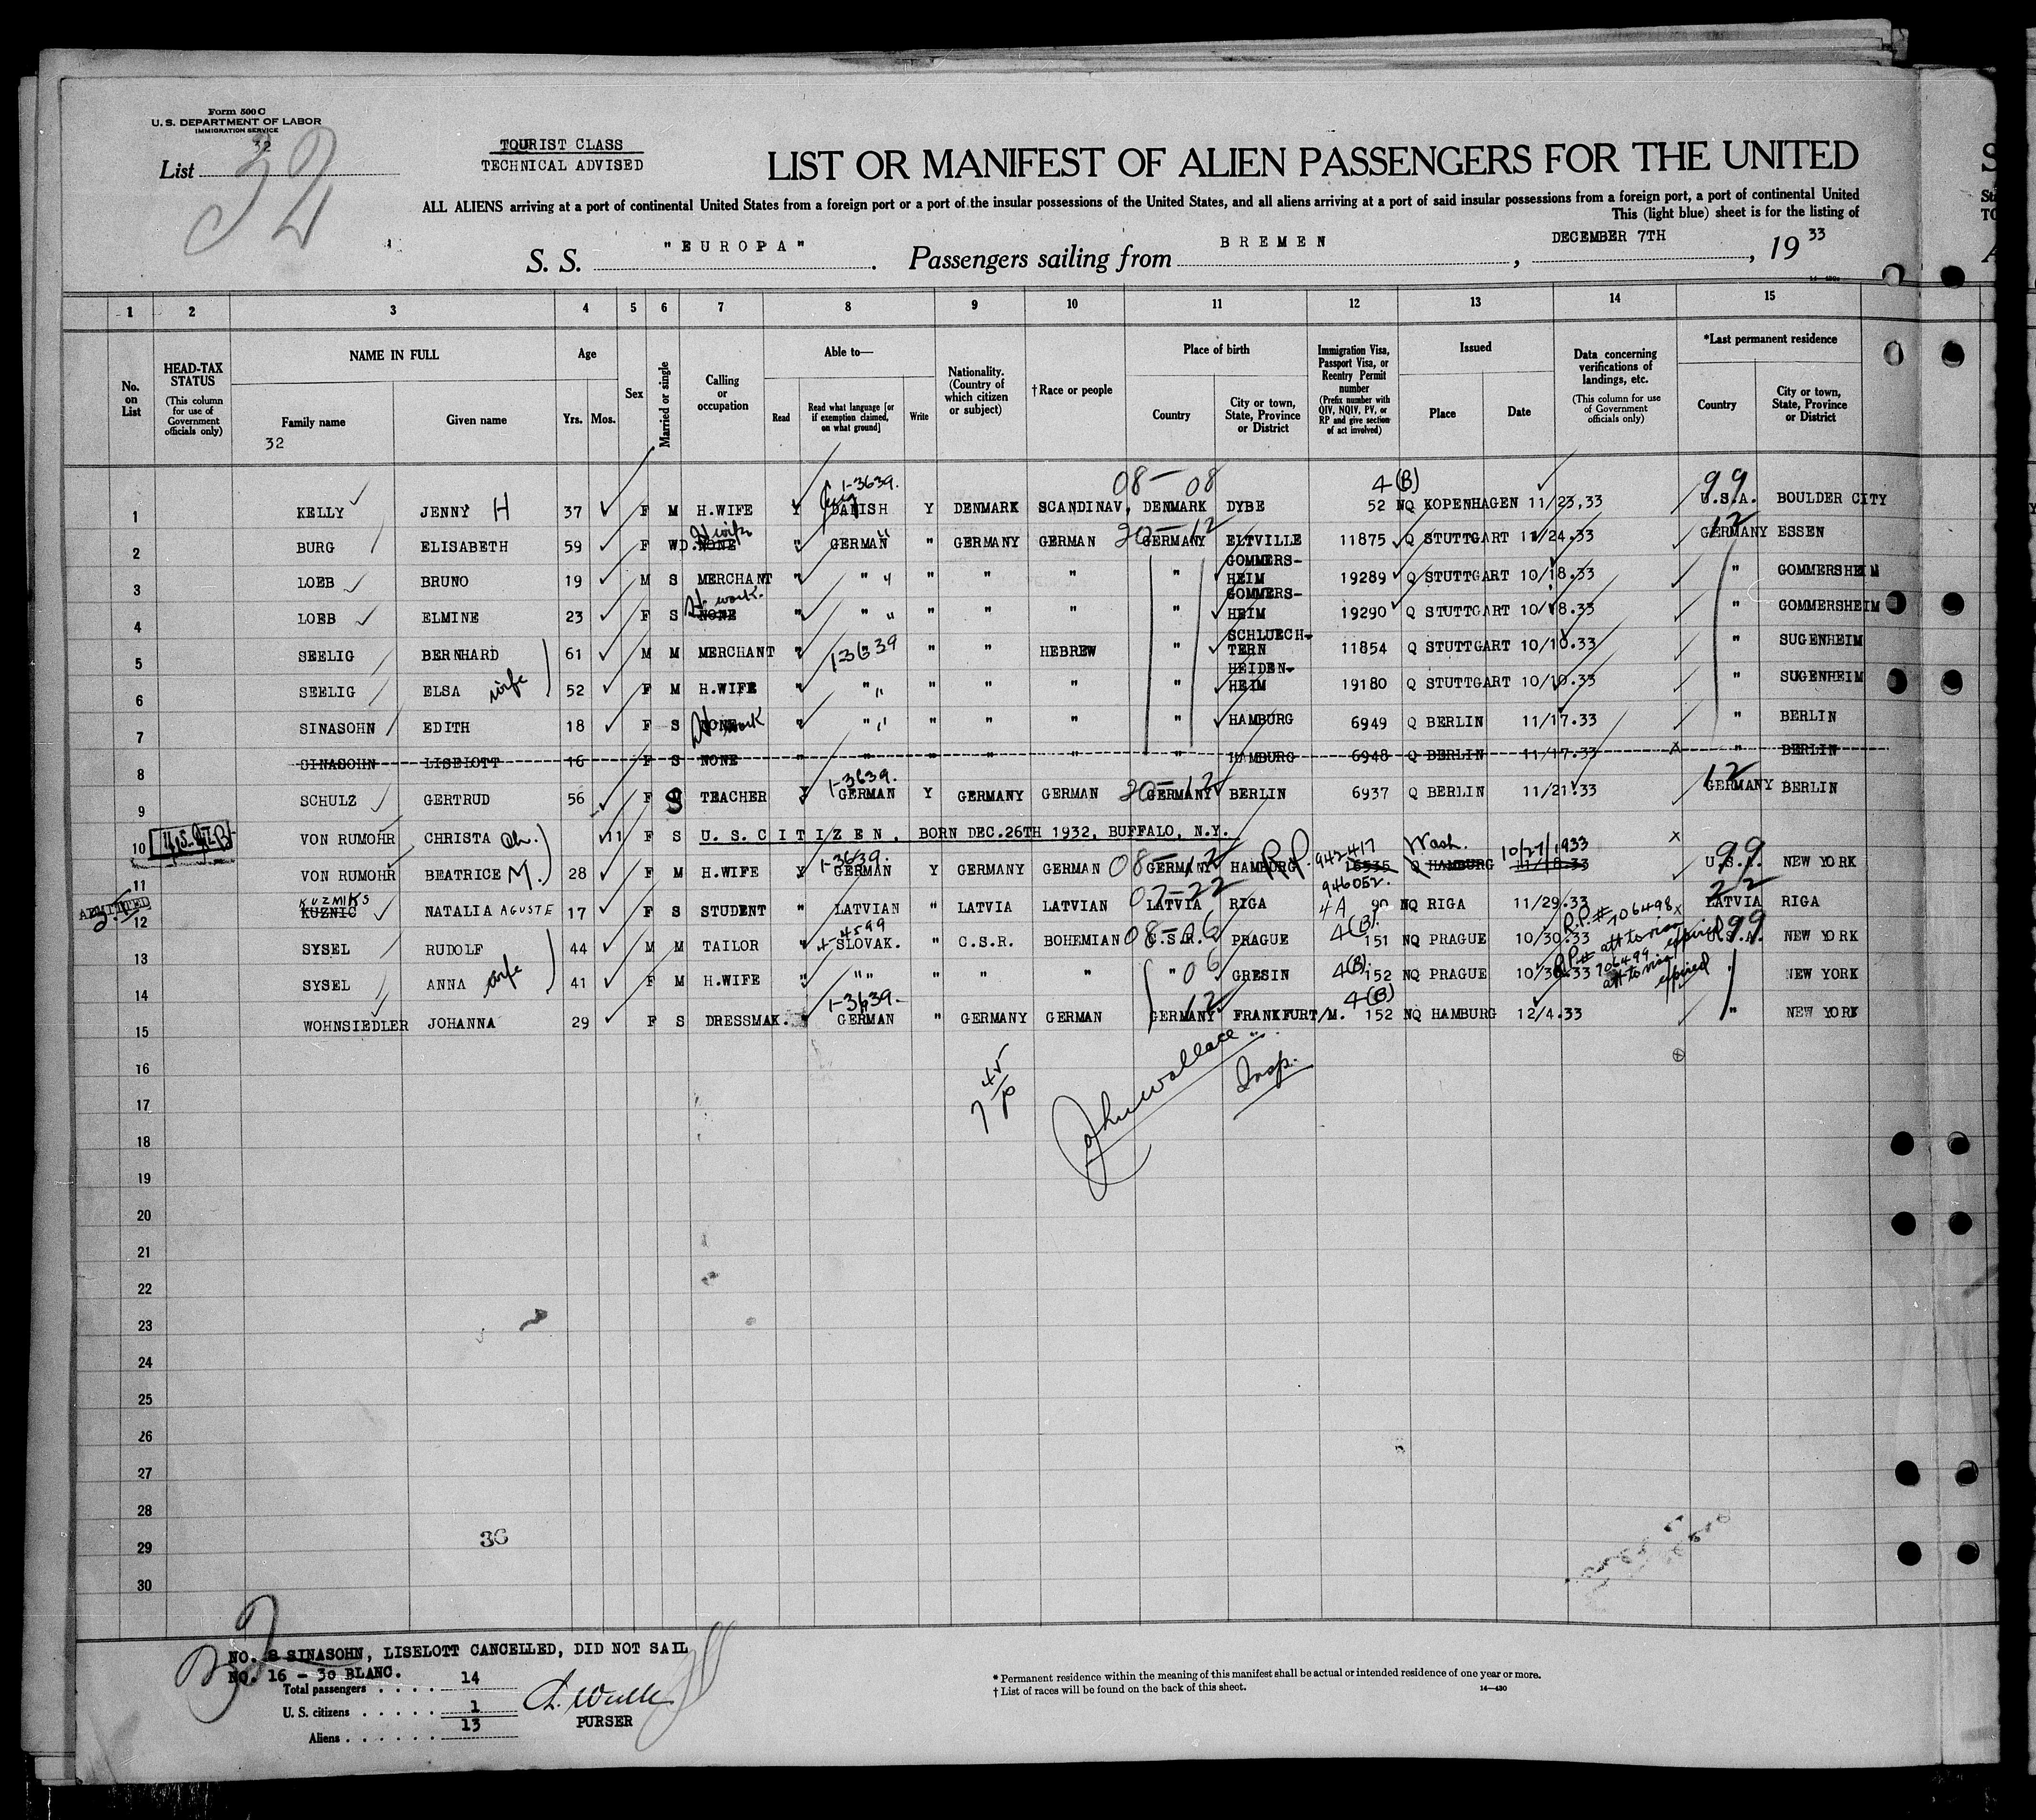 Form 500 C
U. S. DEPARTMENT OF LABOR
IMMIGRATION SERVICE
32
List 32
TOURIST CLASS
TECHNICAL ADVISED
LIST OR MANIFEST OF ALIEN PASSENGERS FOR THE UNITED
ALL ALIENS arriving at a port of continental United States from a foreign port or a port of the insular possessions of the United States, and all aliens arriving at a port of said insular possessions from a foreign port, a port of continental United
This (light blue) sheet is for the listing of
S. S. "EUROPA". Passengers sailing from BREMEN, DECEMBER 7TH, 19 33
1 2 3 4 5 6 7 8 9 10 11 12 13 14 15
No. on List
HEAD-TAX STATUS (This column for use of Government officials only)
NAME IN FULL
Family name
Given name
32
Age
Yrs. Mos.
Sex
Married or single
Calling or occupation
Able to—
Read
Read what language [or if exemption claimed, on what ground]
Write
Nationality. (Country of which citizen or subject)
†Race or people
Place of birth
Country
City or town, State, Province or District
Immigration Visa, Passport Visa, or Reentry Permit number (Prefix number with QIV, NQIV, PV, or RP and give section of act involved)
Issued
Place
Date
Data concerning verifications of landings, etc. (This column for use of Government officials only)
*Last permanent residence
Country
City or town, State, Province or District
1-3639. 08-08 4(B) 99
1 KELLY JENNY H 37 F M H.WIFE Y DANISH Y DENMARK SCANDINAV, DENMARK DYBE 52 NQ KOPENHAGEN 11/23,33 U.S.A. BOULDER CITY
H wife 20-12 12
2 BURG ELISABETH 59 F WD. NONE " GERMAN " GERMANY GERMAN GERMANY ELTVILLE 11875 Q STUTTGART 11/24.33 GERMANY ESSEN
3 LOEB BRUNO 19 M S MERCHANT " " " " " " GOMMERS-HEIM 19289 Q STUTTGART 10/18.33 " GOMMERSHEIM
H. work.
4 LOEB ELMINE 23 F S NONE " " " " " " GOMMERS-HEIM 19290 Q STUTTGART 10/18.33 " GOMMERSHEIM
5 SEELIG BERNHARD 61 M M MERCHANT " 13639 " " HEBREW " SCHLUECH-TERN 11854 Q STUTTGART 10/10.33 " SUGENHEIM
6 SEELIG ELSA wife 52 F M H.WIFE " " " " " " HEIDEN-HEIM 19180 Q STUTTGART 10/10.33 " SUGENHEIM
7 SINASOHN EDITH 18 F S NONE H work " " " " " " HAMBURG 6949 Q BERLIN 11/17.33 " BERLIN
8 SINASOHN LISELOTT 16 F S NONE " " " " " " HAMBURG 6948 Q BERLIN 11/17.33 x " BERLIN
1-3639. 20-12 12
9 SCHULZ GERTRUD 56 F S TEACHER Y GERMAN Y GERMANY GERMAN GERMANY BERLIN 6937 Q BERLIN 11/21.33 GERMANY BERLIN
10 VON RUMOHR CHRISTA ch. 11 F S U.S.CITIZEN, BORN DEC.26TH 1932, BUFFALO, N.Y. x
1-3639. 08-12 R.P. 942417 Wash. 10/27/1933 99
11 VON RUMOHR BEATRICE M. 28 F M H.WIFE Y GERMAN Y GERMANY GERMAN GERMANY HAMBURG 16535 Q HAMBURG 11/18.33 U.S.A. NEW YORK
ADMITTED KUZMIKS 07-22 946052. 4A 22
12 KUZNIC NATALIA AGUSTE 17 F S STUDENT " LATVIAN " LATVIA LATVIAN LATVIA RIGA 90 NQ RIGA 11/29.33 LATVIA RIGA
4-4599 08-06 4(B). R.P.# 706498 x 99
13 SYSEL RUDOLF 44 M M TAILOR " SLOVAK. " C.S.R. BOHEMIAN C.S.R. PRAGUE 151 NQ PRAGUE 10/30.33 expired U.S.A. NEW YORK
06 4(B). R.P.# 706499
14 SYSEL ANNA wife 41 F M H.WIFE " " " " " " GRESIN 152 NQ PRAGUE 10/30.33 expired " NEW YORK
1-3639- 12 4(B)
15 WOHNSIEDLER JOHANNA 29 F S DRESSMAK. " GERMAN " GERMANY GERMAN GERMANY FRANKFURT/M. 152 NQ HAMBURG 12/4.33 " NEW YORK
16
17
18
19
20
21
22
23
24
25
26
27
28
29
30
7 45/p
John Wallace
Insp.
36
NO. 8 SINASOHN, LISELOTT CANCELLED, DID NOT SAIL
NO. 16 - 30 BLANC.
Total passengers . . . . 14
U. S. citizens . . . . . . 1
Aliens . . . . . . 13
PURSER
* Permanent residence within the meaning of this manifest shall be actual or intended residence of one year or more.
† List of races will be found on the back of this sheet.
14—430